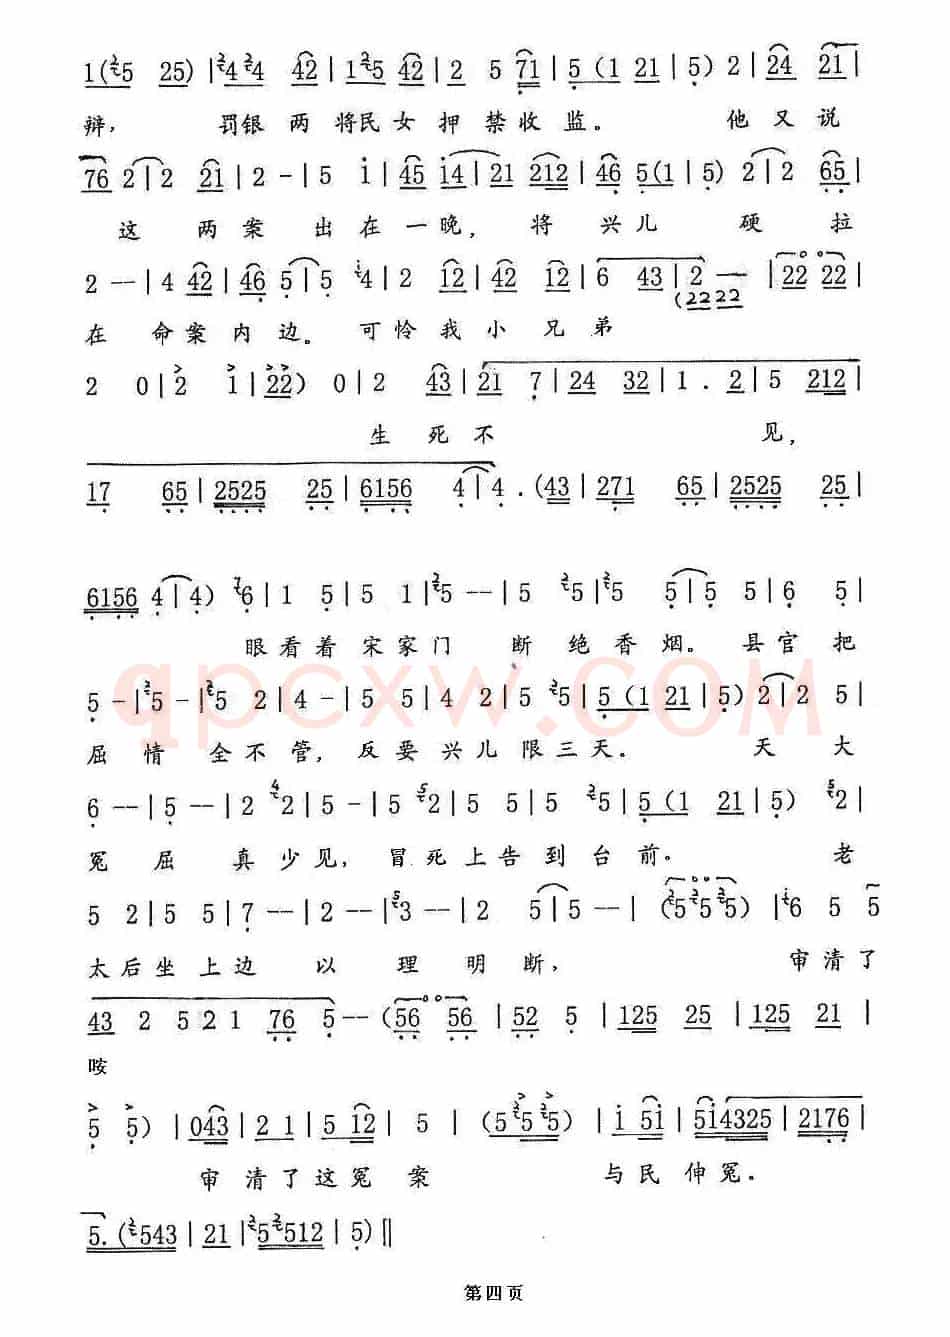 1(25 25) | 24 24 42 | 1 25 42 | 2 5 71 | 5 (1 21 | 5) 2 | 24 21 |
辩, 罚银两将民女押禁收监。 他又说
76 2 | 2 21 | 2 - | 5 i | 45 i4 | 21 212 | 46 5(1 | 5) 2 | 2 65 |
这两案出在一晚, 将兴儿硬拉
2 - - | 4 42 | 46 5 | 5 i4 | 2 12 | 42 12 | 6 43 | 2 — | 22 22 |
(2222
在命案内边。可怜我小兄弟
2 0 | 2 1 | 22) 0 | 2 43 | 21 7 | 24 32 | 1 . 2 | 5 212 |
生死不见,
17 65 | 2525 25 | 6156 4 | 4 . (43 | 271 65 | 2525 25 |
6156 4 | 4) 76 | 1 5 | 5 1 | 25 - - | 5 25 | 25 5 | 5 5 | 6 5 |
眼看着宋家门断绝香烟。县官把
5 - | 25 - | 25 2 | 4 - | 5 5 | 4 2 | 5 25 | 5 (1 21 | 5) 2 | 2 5 |
屈情全不管, 反要兴儿限三天. 天大
6 - - | 5 - - | 2 42 | 5 - | 5 52 | 5 5 | 5 25 | 5 (1 21 | 5) 52 |
冤屈真少见, 冒死上告到台前。 老
5 2 | 5 5 | 7 - - | 2 - - | 53 - - | 2 5 | 5 - - | (25 25 25) | i6 5 5
太后坐上边以理明断, 审清了
43 2 5 2 1 76 5 - - (56 56 | 52 5 | 125 25 | 125 21 |
咳
5 5) | 043 | 2 1 | 5 12 | 5 | (5 25 25) | i 5i | 5i4325 | 2176 |
审清了这冤案 与民伸冤.
5. (2543 | 21 | 25 2512 | 5) ||
第四页
qpcxw.COM